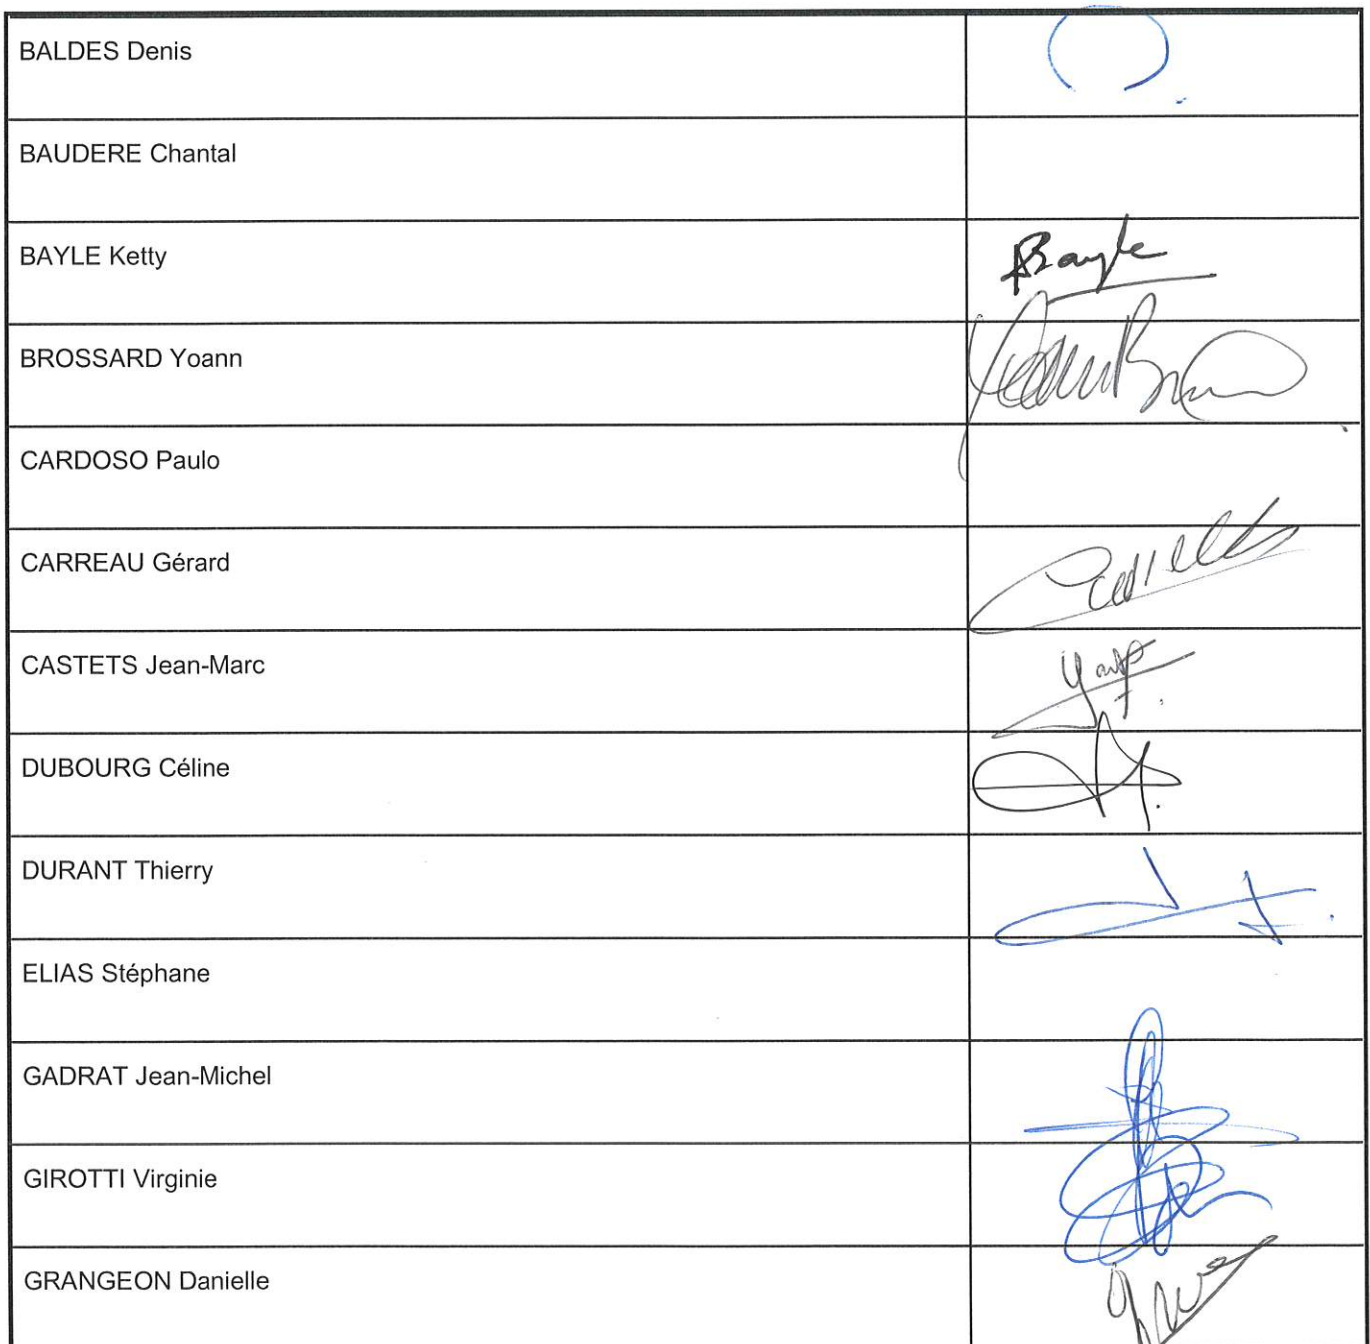 BALDES Denis
BAUDERE Chantal
BAYLE Ketty
Bayle
BROSSARD Yoann
CARDOSO Paulo
CARREAU Gérard
CASTETS Jean-Marc
DUBOURG Céline
DURANT Thierry
ELIAS Stéphane
GADRAT Jean-Michel
GIROTTI Virginie
GRANGEON Danielle